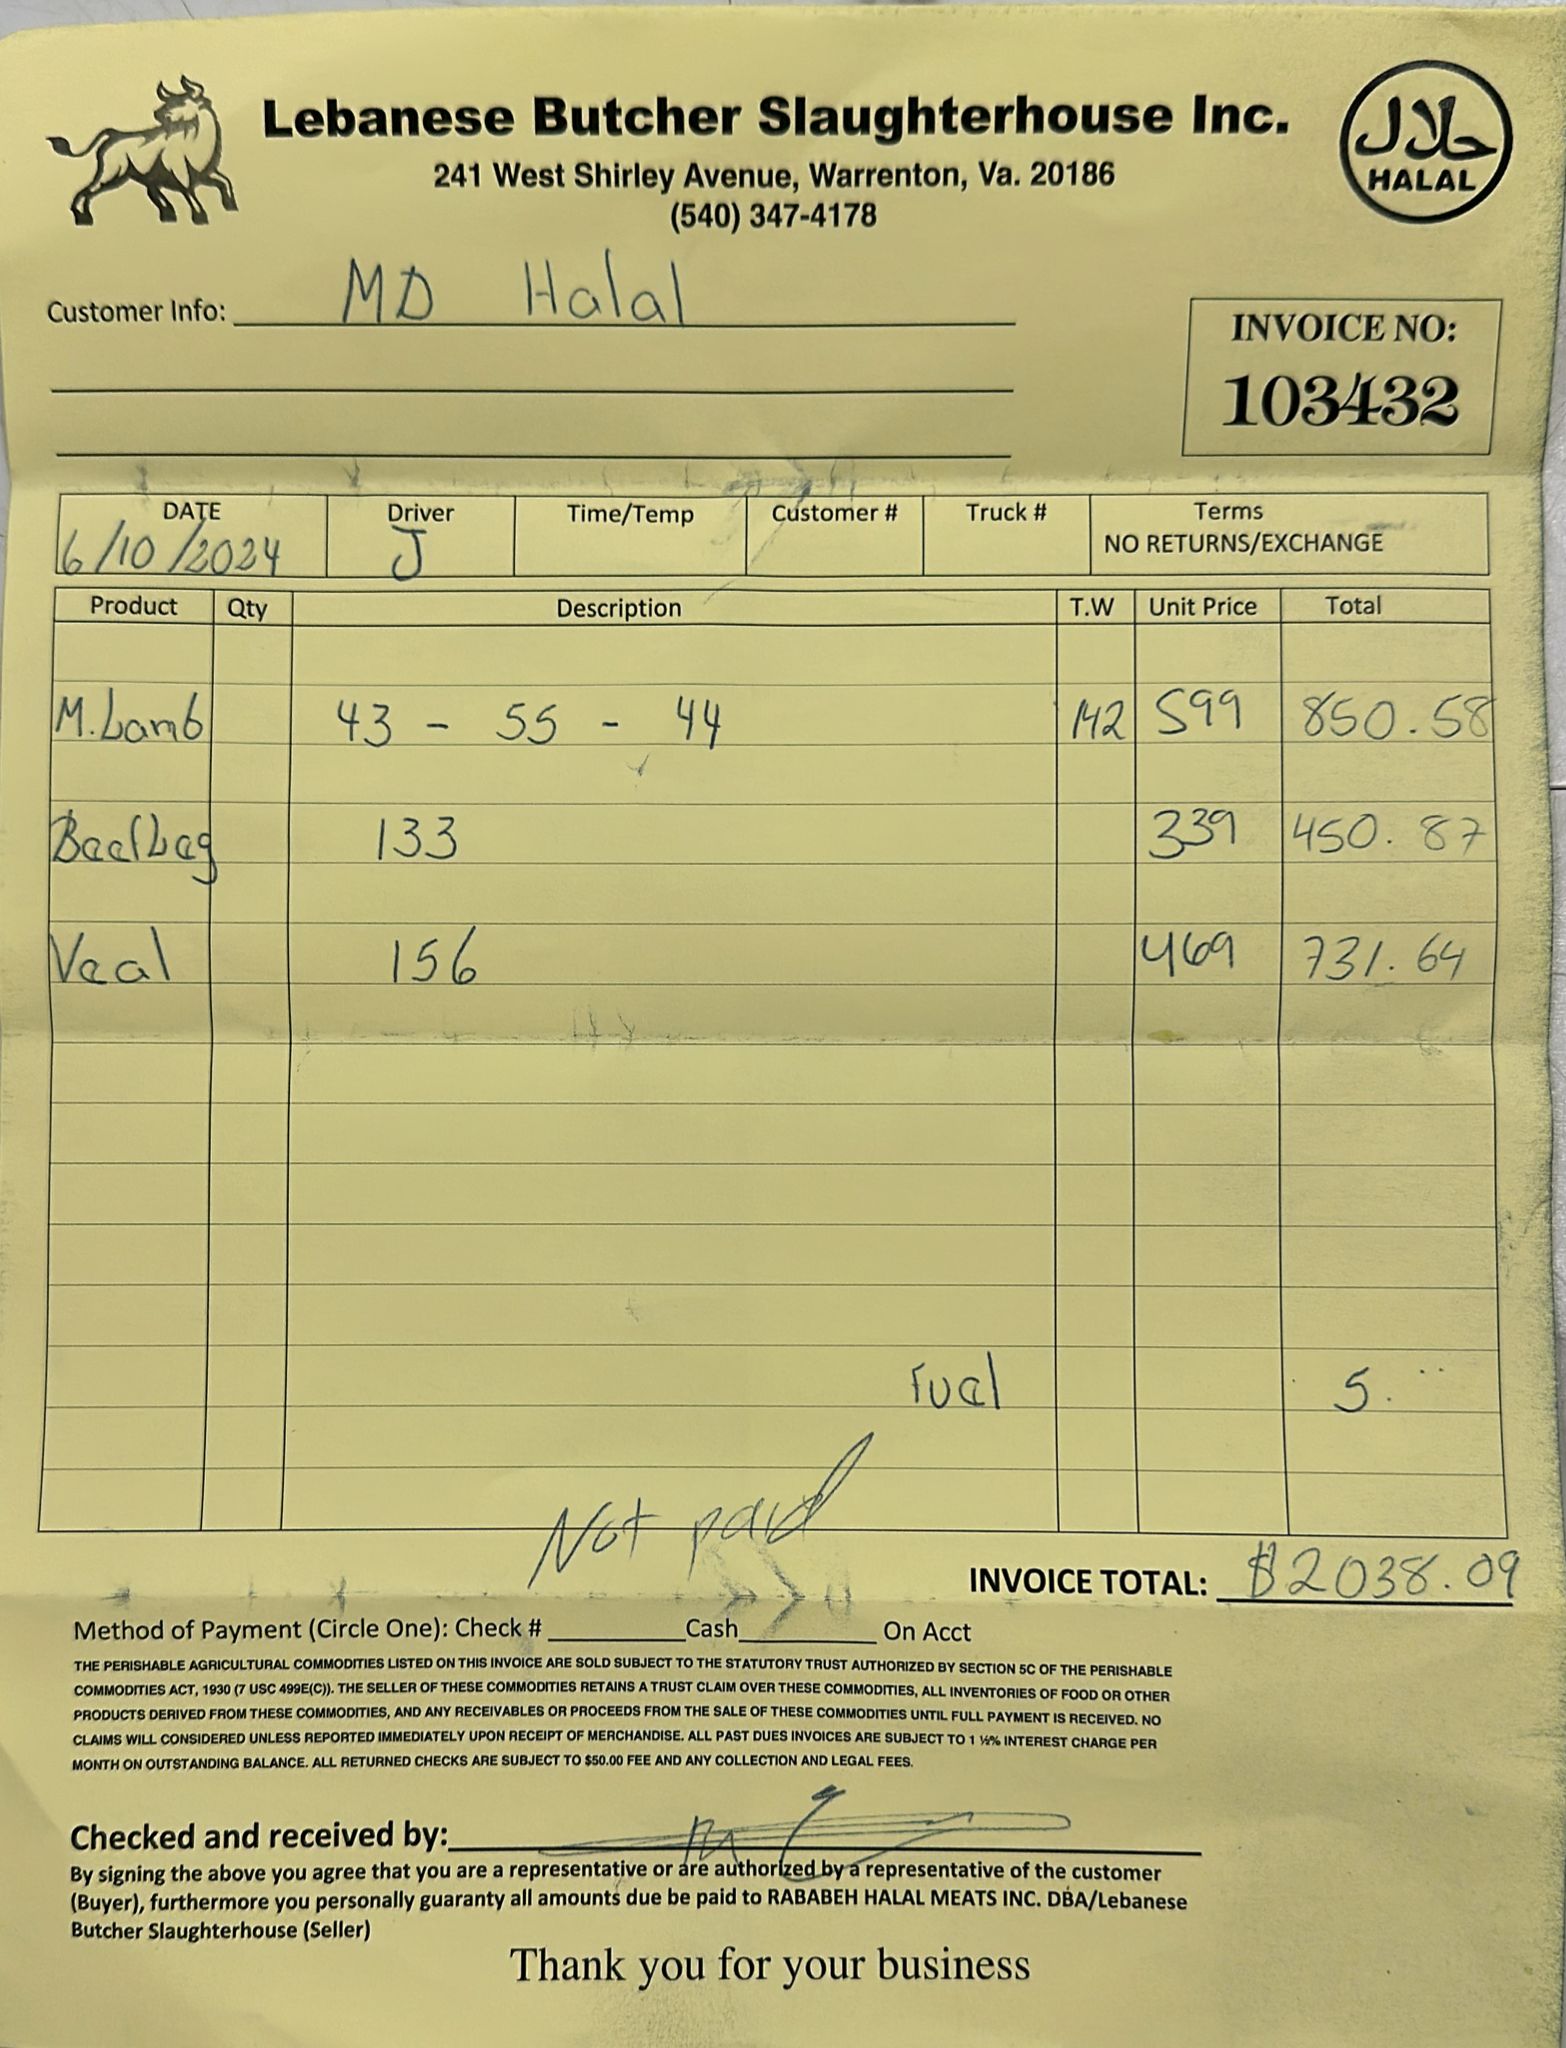 Lebanese Butcher Slaughterhouse Inc.
حلال
HALAL
241 West Shirley Avenue, Warrenton, Va. 20186
(540) 347-4178
Customer Info: MD Halal
INVOICE NO:
103432
DATE Driver Time/Temp Customer # Truck # Terms
6/10/2024 J NO RETURNS/EXCHANGE
Product Qty Description T.W Unit Price Total
M.Lamb 43 - 55 - 44 142 599 850.58
133 339 450.87
Veal 156 469 731.64
Fuel 5.
Not paid
INVOICE TOTAL: $2038.09
Method of Payment (Circle One): Check # Cash On Acct
THE PERISHABLE AGRICULTURAL COMMODITIES LISTED ON THIS INVOICE ARE SOLD SUBJECT TO THE STATUTORY TRUST AUTHORIZED BY SECTION 5C OF THE PERISHABLE
COMMODITIES ACT, 1930 (7 USC 499E(C)). THE SELLER OF THESE COMMODITIES RETAINS A TRUST CLAIM OVER THESE COMMODITIES, ALL INVENTORIES OF FOOD OR OTHER
PRODUCTS DERIVED FROM THESE COMMODITIES, AND ANY RECEIVABLES OR PROCEEDS FROM THE SALE OF THESE COMMODITIES UNTIL FULL PAYMENT IS RECEIVED. NO
CLAIMS WILL CONSIDERED UNLESS REPORTED IMMEDIATELY UPON RECEIPT OF MERCHANDISE. ALL PAST DUES INVOICES ARE SUBJECT TO 1 ½% INTEREST CHARGE PER
MONTH ON OUTSTANDING BALANCE. ALL RETURNED CHECKS ARE SUBJECT TO $50.00 FEE AND ANY COLLECTION AND LEGAL FEES.
Checked and received by:
By signing the above you agree that you are a representative or are authorized by a representative of the customer
(Buyer), furthermore you personally guaranty all amounts due be paid to RABABEH HALAL MEATS INC. DBA/Lebanese
Butcher Slaughterhouse (Seller)
Thank you for your business